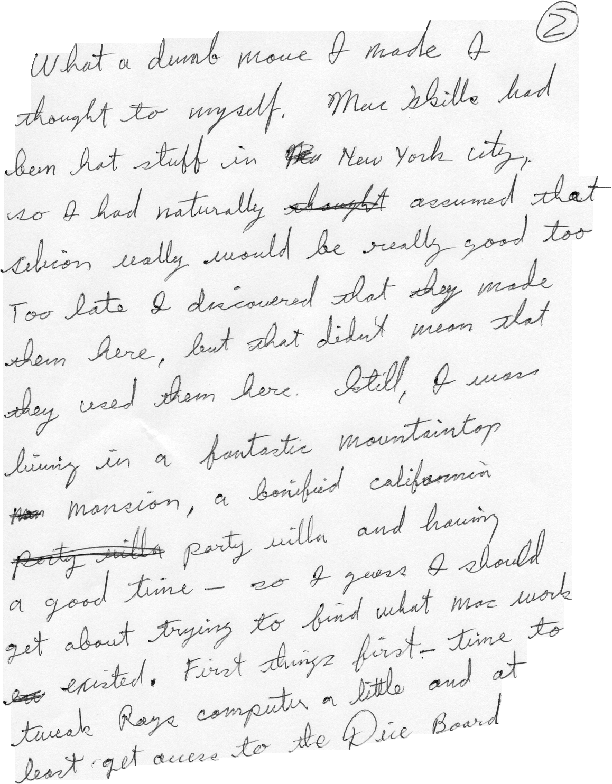 2
What a dumb move I made I
thought to myself. Mac Skills had
been hot stuff in New York city,
so I had naturally thought assumed that
silicon vally would be really good too
Too late I discovered that they made
them here, but that didn't mean that
they used them here. Still, I was
living in a fantastic mountaintop
mansion, a bonified california
party villa party villa and having
a good time - so I guess I should
get about trying to find what mac work
existed. First things first - time to
tweak Rays computer a little and at
least get access to the Dice Board